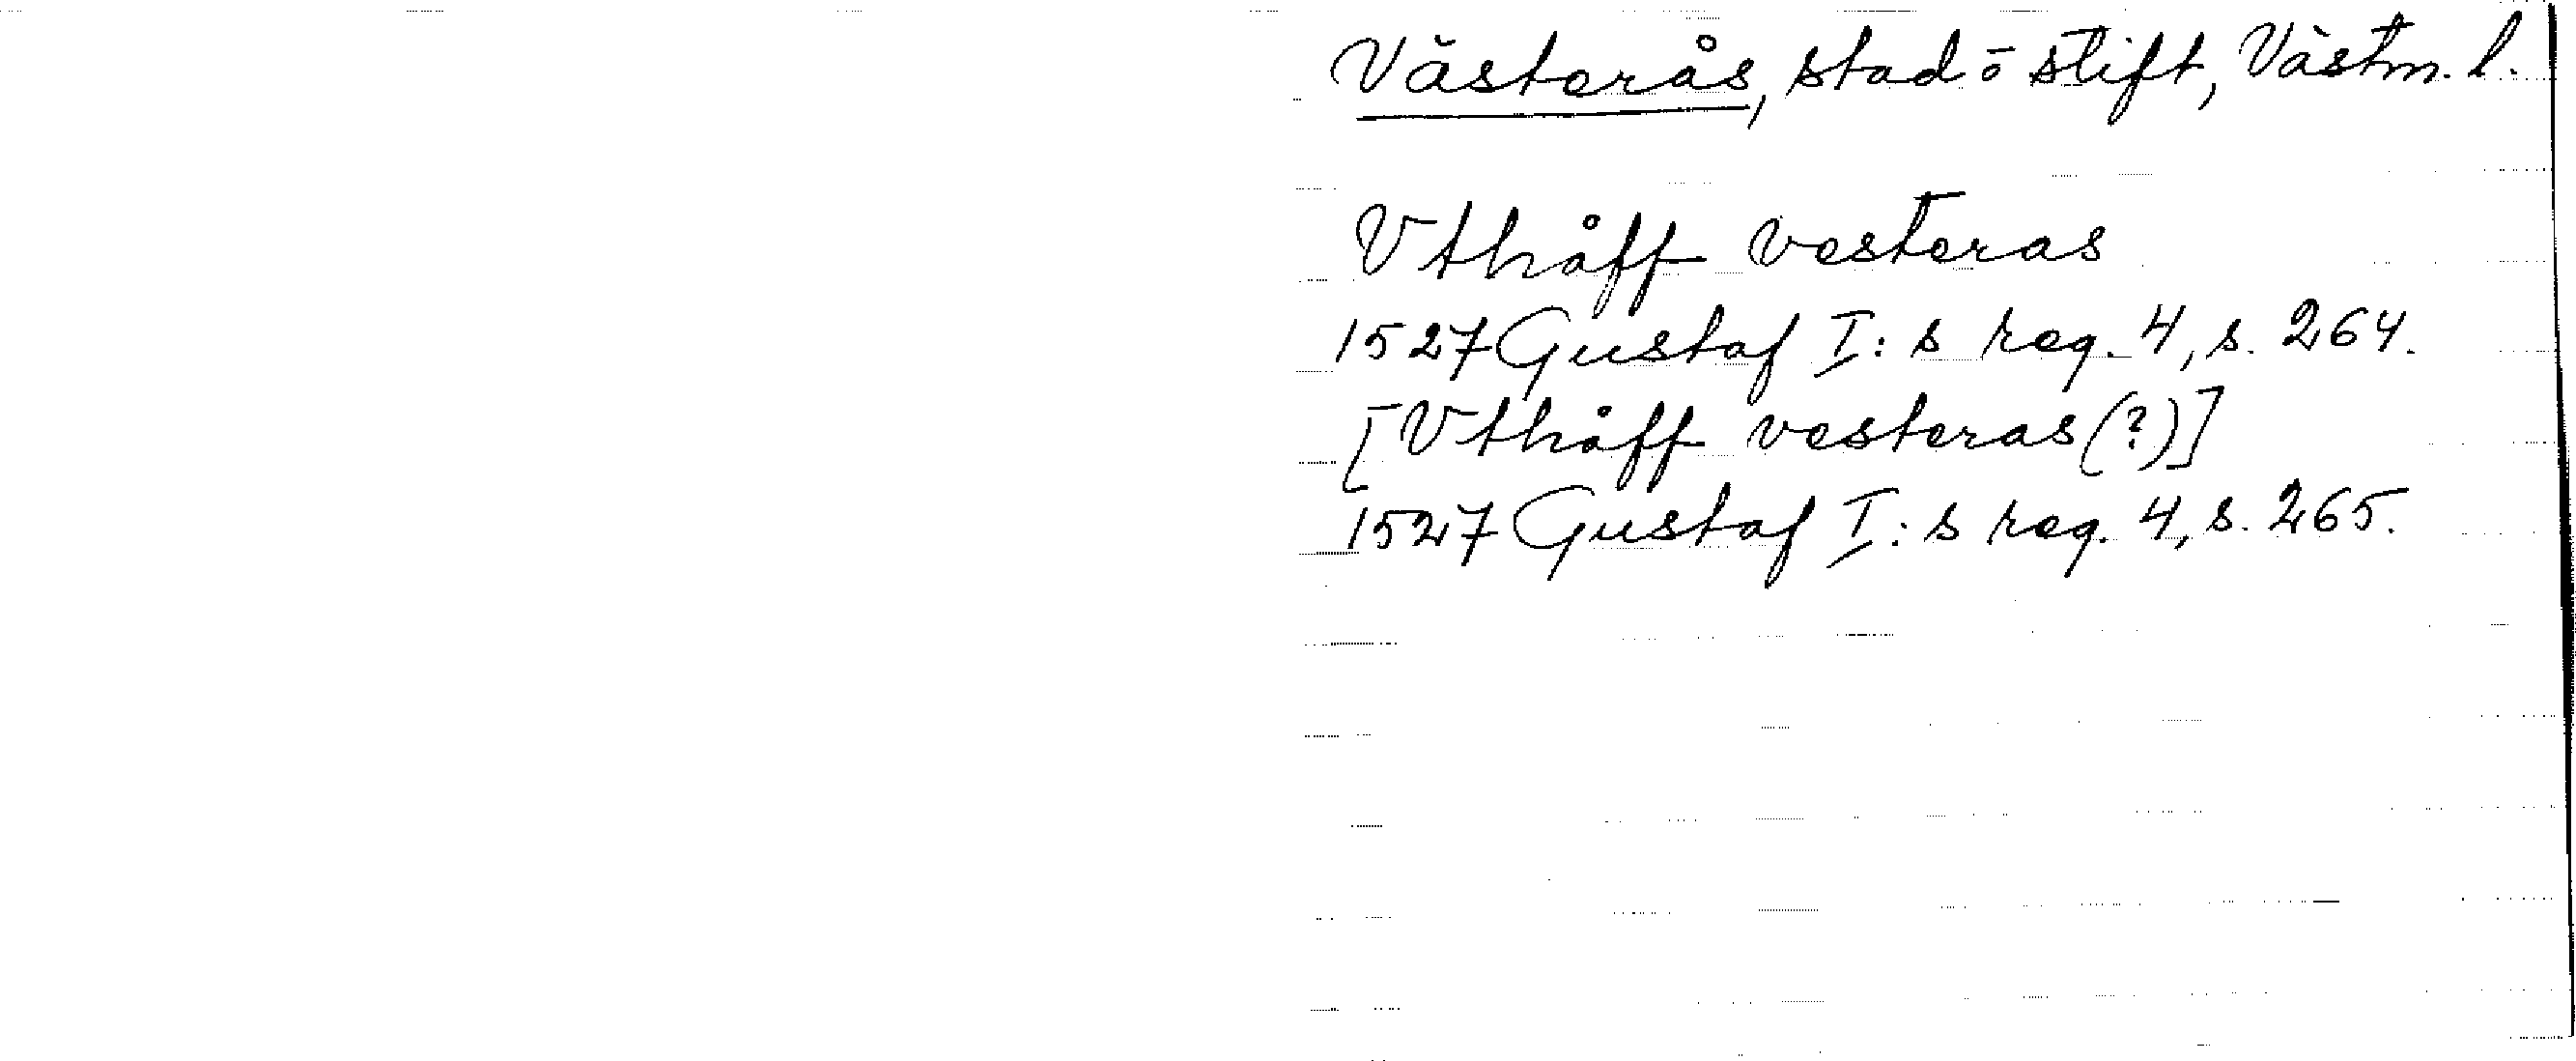 Västerås, stad ō stift, Västm. l.
Vthåff vesteras
1527 Gustaf I:s reg. 4, s. 264.
[Vthåff vesteras (?)]
1527 Gustaf I:s reg. 4, s. 265.